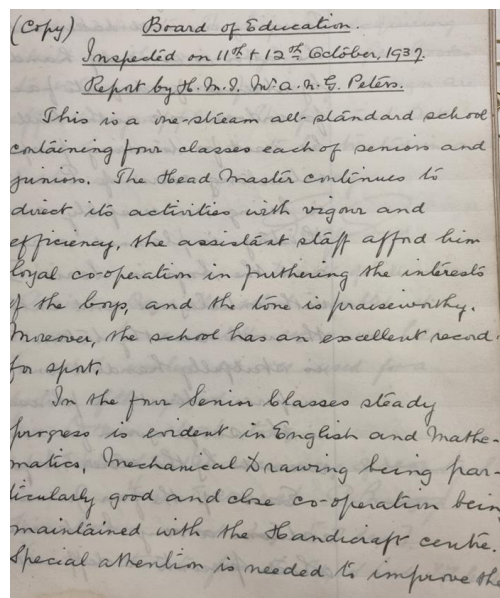 (Copy) Board of Education.
Inspected on 11th & 12th October, 1937.
Report by H.M.I. Mr A.N.G. Peters.
This is a one-stream all-standard school
containing four classes each of seniors and
juniors. The Head Master continues to
direct its activities with vigour and
efficiency, the assistant staff afford him
loyal co-operation in furthering the interests
of the boys, and the tone is praiseworthy.
Moreover, the school has an excellent record
for sport.
In the four Senior Classes steady
progress is evident in English and Mathe-
matics, Mechanical Drawing being par-
ticularly good and close co-operation bein
maintained with the Handicraft centre.
Special attention is needed to improve the